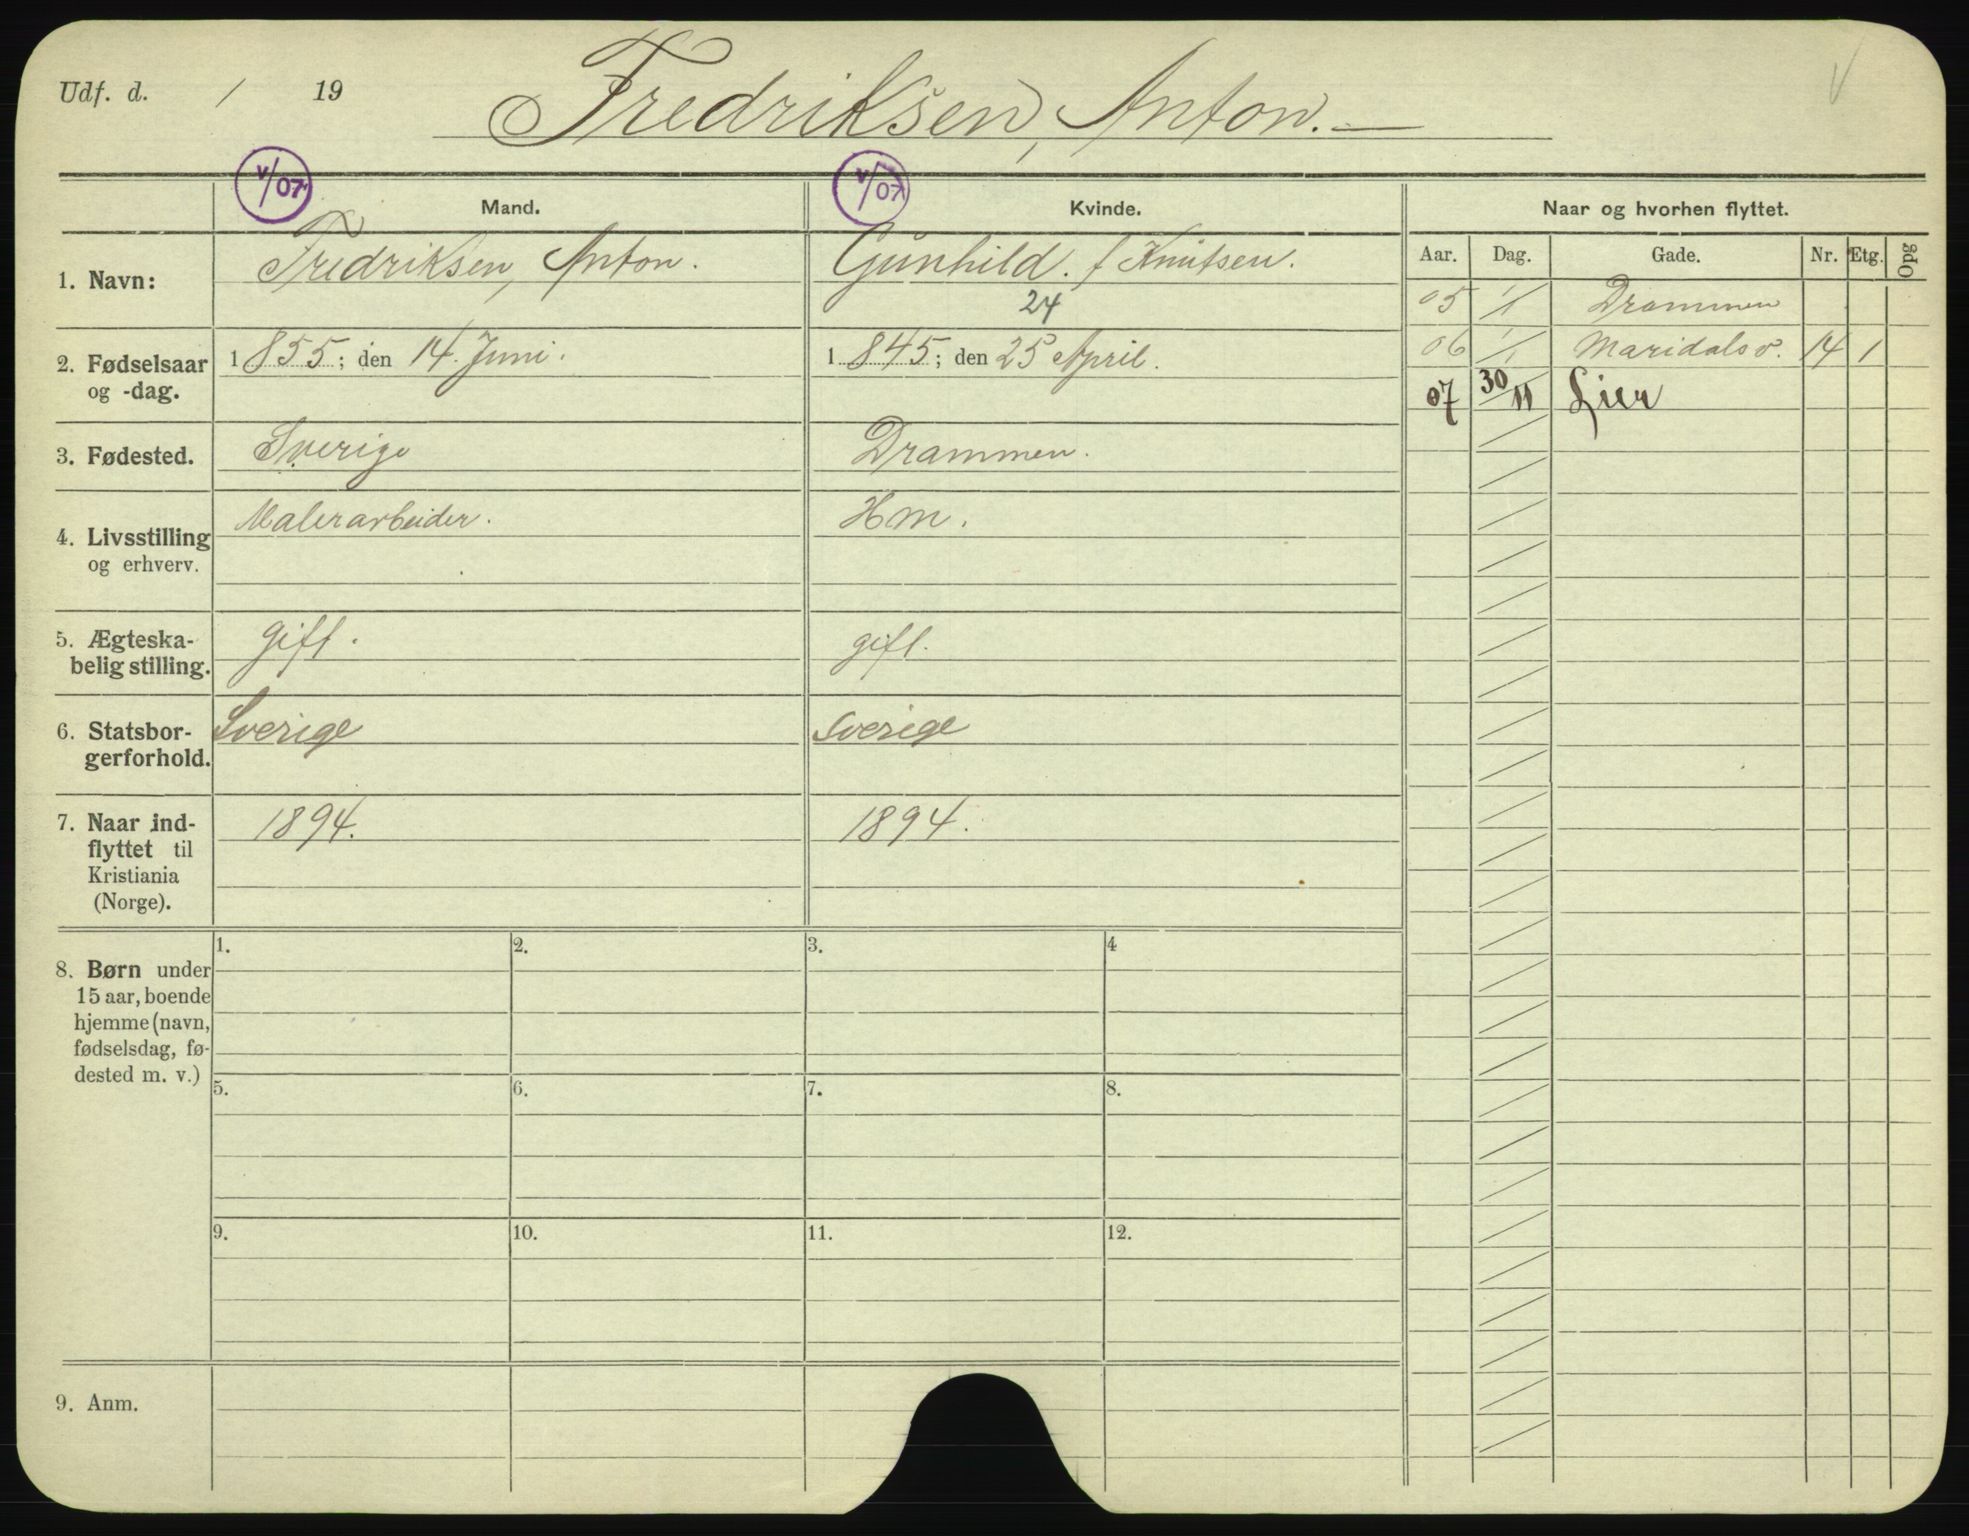 Udf. d. / 19
Fredriksen, Anton. —
V
V/07 V/07
Mand. Kvinde. Naar og hvorhen flyttet.
Aar. Dag. Gade. Nr. Etg. Opg
1. Navn: Fredriksen, Anton. Gunhild. f Knutsen.
24
2. Fødselsaar og -dag. 1855; den 14. Juni. 1845; den 25 April.
3. Fødested. Sverige Drammen.
4. Livsstilling og erhverv. Malerarbeider. Hm.
5. Ægteska-
belig stilling. gift. gift.
6. Statsbor-
gerforhold. Sverige Sverige
7. Naar ind-
flyttet til
Kristiania
(Norge). 1894. 1894.
8. Børn under
15 aar, boende
hjemme (navn,
fødselsdag, fø-
dested m. v.)
1. 2. 3. 4
5. 6. 7. 8.
9. 10. 11. 12.
9. Anm.
05 1/1 Drammen
06 1/1 Maridalsv. 14 1
07 30/11 Lier